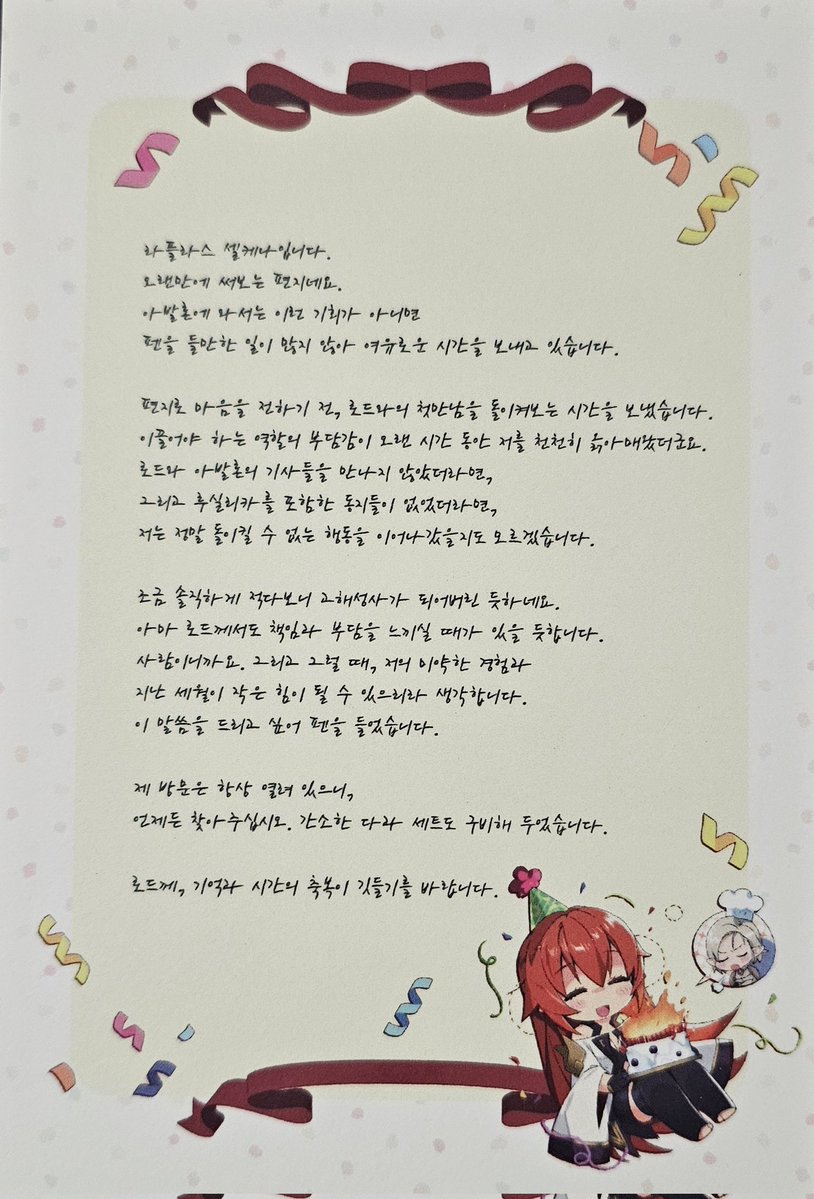 라플라스 셀케나입니다.
오랜만에 써보는 편지네요.
아발론에 와서는 이런 기회가 아니면
펜을 들만한 일이 많지 않아 여유로운 시간을 보내고 있습니다.
편지로 마음을 전하기 전, 로드와의 첫만남을 돌이켜보는 시간을 보냈습니다.
이끌어야 하는 역할의 부담감이 오랜 시간 동안 저를 천천히 옭아매왔더군요.
로드와 아발론의 기사들을 만나지 않았더라면,
그리고 루실리카를 포함한 동지들이 없었더라면,
저는 정말 돌이킬 수 없는 행동을 이어나갔을지도 모르겠습니다.
조금 솔직하게 적다보니 고해성사가 되어버린 듯하네요.
아마 로드께서도 책임과 부담을 느끼실 때가 있을 듯합니다.
사람이니까요. 그리고 그럴 때, 저의 미약한 경험과
지난 세월이 작은 힘이 될 수 있으리라 생각합니다.
이 말씀을 드리고 싶어 펜을 들었습니다.
제 방문은 항상 열려 있으니,
언제든 찾아주십시오. 간소한 다과 세트도 구비해 두었습니다.
로드께, 기억과 시간의 축복이 깃들기를 바랍니다.